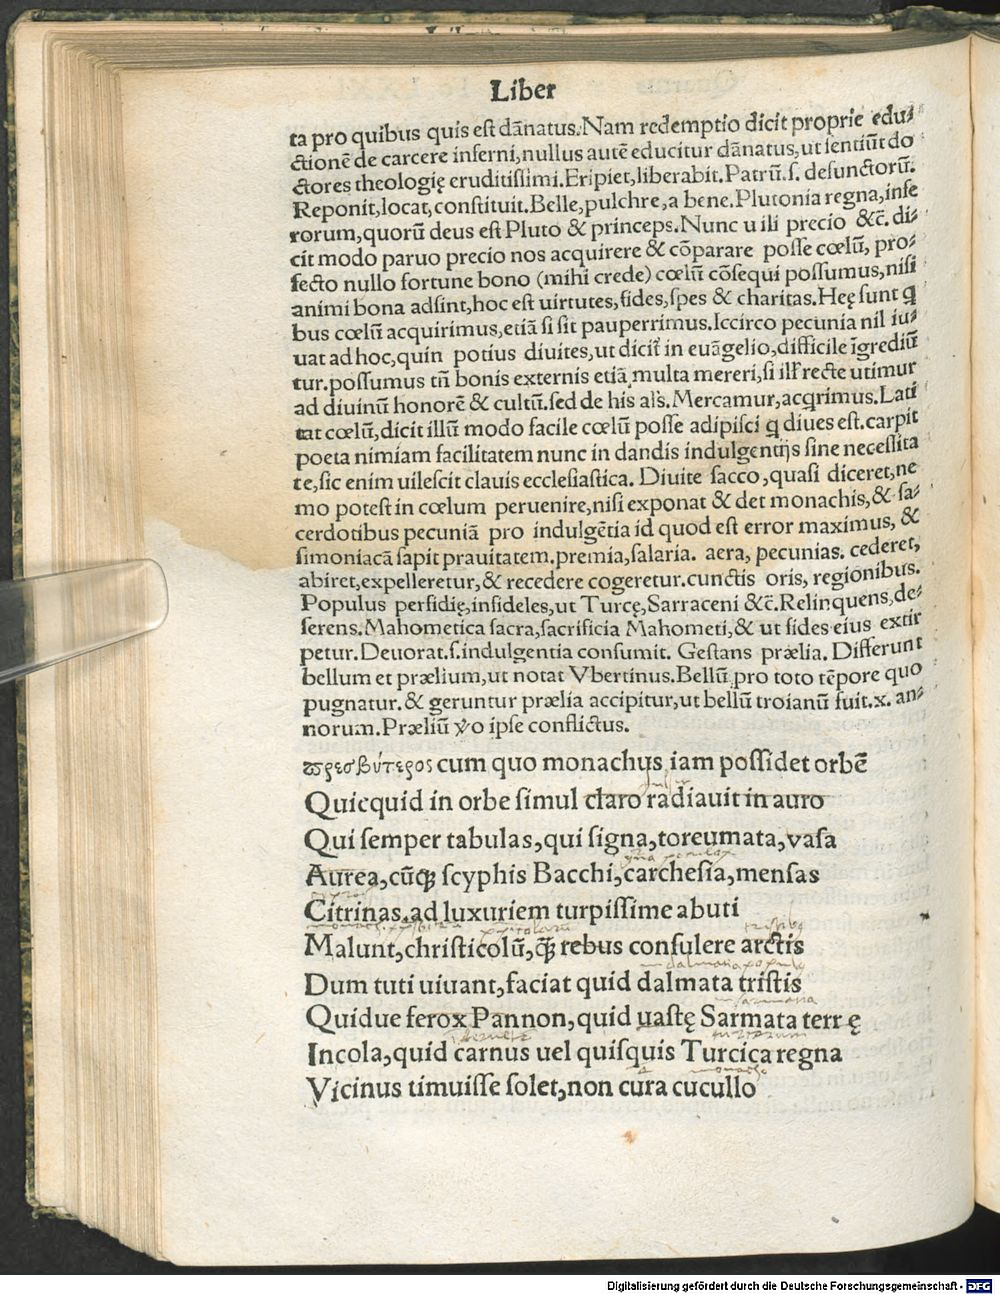 Liber
ta pro quibus quis est dãnatus. Nam redemptio dicit proprie edu⸗
ctionē de carcere inferni, nullus autē educitur dãnatus, ut sentiūt do
ctores theologię eruditissimi. Eripiet, liberabit. Patrū. s. defunctorū.
Reponit, locat, constituit. Belle, pulchre, a bene. Plutonia regna, infe
rorum, quorū deus est Pluto & princeps. Nunc uili precio &c̃. di⸗
cit modo paruo precio nos acquirere & cõparare posse cœlū, pro⸗
fecto nullo fortune bono (mihi crede) cœlū cõsequi possumus, nisi
animi bona adsint, hoc est uirtutes, fides, spes & charitas. Hęę sunt q
bus cœlū acquirimus, etiã si sit pauperrimus. Iccirco pecunia nil iu⸗
uat ad hoc, quin potius diuites, ut dicit̃ in euãgelio, difficile ĩgrediũ
tur. possumus tñ bonis externis etiã multa mereri, si recte utimur
ad diuinū honorē & cultū. sed de his al's. Mercamur, acqrimus. Lati
tat cœlū, dicit illū modo facile cœlū posse adipisci q diues est. carpit
poeta nimiam facilitatem nunc in dandis indulgentijs sine necessita
te, sic enim uilescit clauis ecclesiastica. Diuite sacco, quasi diceret, ne
mo potest in cœlum peruenire, nisi exponat & det monachis, & sa⸗
cerdotibus pecuniã pro indulgētia id quod est error maximus, &
simoniacã sapit prauitatem. premia, salaria. aera, pecunias. cederet,
abiret, expelleretur, & recedere cogeretur. cunctis oris, regionibus.
Populus perfidię, infideles, ut Turcę, Sarraceni &c̃. Relinquens, de⸗
serens. Mahometica sacra, sacrificia Mahometi, & ut fides eius extir
petur. Deuorat. s. indulgentia consumit. Gestans prælia. Differunt
bellum et prælium, ut notat Vbertinus. Bellū pro toto tēpore quo
pugnatur. & geruntur prælia accipitur, ut bellū troianū fuit. x. an⸗
norum. Præliū ṽo ipse conflictus.
πρεσβύτερος cum quo monachus iam possidet orbē
Quicquid in orbe simul claro radiauit in auro
Qui semper tabulas, qui signa, toreumata, vasa
Aurea, cūq; scyphis Bacchi, carchesia, mensas
Citrinas. ad luxuriem turpissime abuti
Malunt, christicolū, q̃ rebus consulere arctis
Dum tuti uiuant, faciat quid dalmata tristis
Quidue ferox Pannon, quid uastę Sarmata terrę
Incola, quid carnus uel quisquis Turcica regna
Vicinus timuisse solet, non cura cucullo
Digitalisierung gefördert durch die Deutsche Forschungsgemeinschaft - DFG